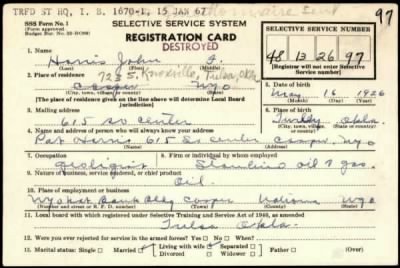 TRFD ST HQ, I. B. 1670-1, 15 JAN 67
97
SSS Form No. 1
(Form approved.
SELECTIVE SERVICE SYSTEM
REGISTRATION CARD
DESTROYED
SELECTIVE SERVICE NUMBER
48 13 26 97
(Registrar will not enter Selective Service number)
1. Name
Harris John J.
2. Place of residence
723 S. Knoxville, Tulsa, Okla
Casper Wyo
(The place of residence given on the line above will determine Local Board jurisdiction)
5. Date of birth
May 16 1926
3. Mailing address
615 So Center
6. Place of birth
Turley Okla.
(City, town, village, or county) (State or country)
4. Name and address of person who will always know your address
Pat Harris 615 So Center Casper, Wyo
7. Occupation
Geologist
8. Firm or individual by whom employed
Stanolind oil & gas
9. Nature of business, service rendered, or chief product
Oil
10. Place of employment or business
Wyo Nat Bank Bldg Casper Natrona Wyo
(Number and street or R. F. D. number) (City, town, or village) (County) (State)
11. Local board with which registered under Selective Training and Service Act of 1940, as amended
Tulsa Okla.
12. Were you ever rejected for service in the armed forces? Yes No When?
13. Marital status: Single Married Living with wife Separated Divorced Widower Father (Over)